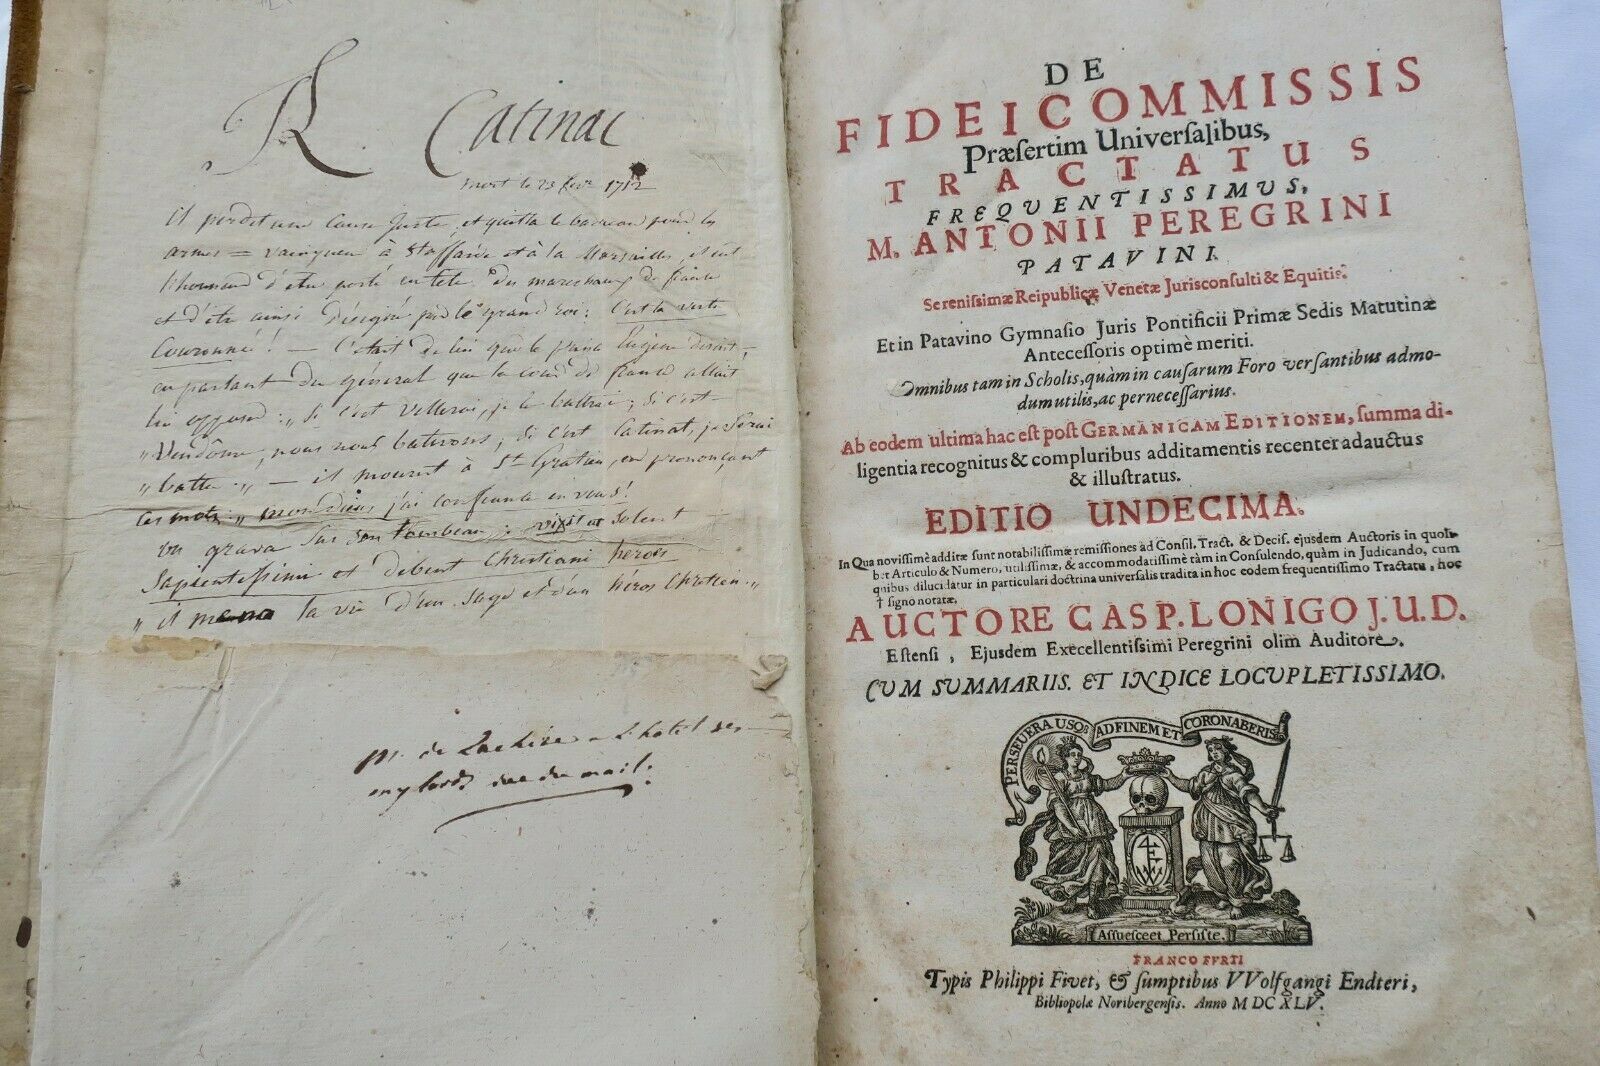 R Catinat
mort le 23 fevr 1712
il perdit une cause juste, et quitta le barreau pour les
armes = vainqueur à Staffarde et à la Marsaille, il eut
l'honneur d'être porté en tête des marechaux de france
et d'être ainsi designé par le grand roi: C'est la vertu
Couronnée! — C'etait de lui que le prince Eugène disait,
en partant du général que la cour de france allait
lui opposer: „ Si c'est Villeroi, je le battrai; si c'est
„ Vendôme, nous nous battrons; si c'est Catinat, je serai
„ battu. „ — il mourut à St Gratien, en prononçant
ces mots: „ mon dieu, j'ai confiance en vous!
on grava sur son tombeau: vixit ut solent
Sapientissimi et debent Christiani herois
„ il mena la vie d'un sage et d'un héros Chrétien. „
M. de à l'hotel des
mylords rue du mail.
DE
FIDEICOMMISSIS
Præſertim Univerſalibus,
TRACTATUS
FREQUENTISSIMVS,
M. ANTONII PEREGRINI
PATAVINI.
Sereniſſimæ Reipublicæ Venetæ Jurisconſulti & Equitis.
Et in Patavino Gymnaſio Juris Pontificii Primæ Sedis Matutinæ
Anteceſſoris optimè meriti.
Omnibus tam in Scholis, quàm in cauſarum Foro verſantibus admo-
dum utilis, ac perneceſſarius.
Ab eodem ultima hac eſt poſt GERMANICAM EDITIONEM, ſumma di-
ligentia recognitus & compluribus additamentis recenter adauctus
& illuſtratus.
EDITIO UNDECIMA.
In Qua noviſſimè additæ ſunt notabiliſſimæ remiſſiones ad Conſil. Tract. & Deciſ. ejusdem Auctoris in quoli-
bet Articulo & Numero, utiliſſimæ, & accommodatiſſimè tàm in Conſulendo, quàm in Judicando, cum
quibus dilucidatur in particulari doctrina univerſalis tradita in hoc eodem frequentiſſimo Tractatu, hoc
† ſigno notatæ,
AUCTORE CASP. LONIGO J.U.D.
Eſtenſi, Ejusdem Execellentiſſimi Peregrini olim Auditore.
CUM SUMMARIIS. ET INDICE LOCUPLETISSIMO.
PERSEUERA USQ; AD FINEM ET CORONABERIS
Aſſueſce et Perſiſte.
FRANCOFURTI
Typis Philippi Fivet, & ſumptibus VVolfgangi Endteri,
Bibliopolæ Noribergenſis. Anno M DC XLV.